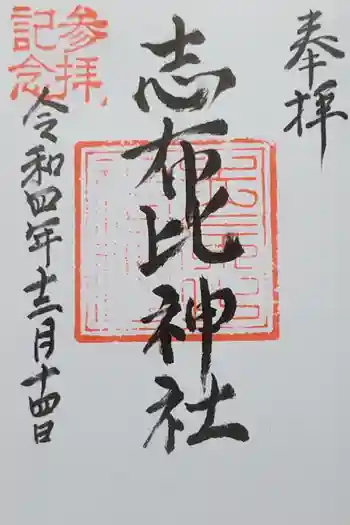 奉拝
志布比神社
令和四年十二月十四日
参拝
記念